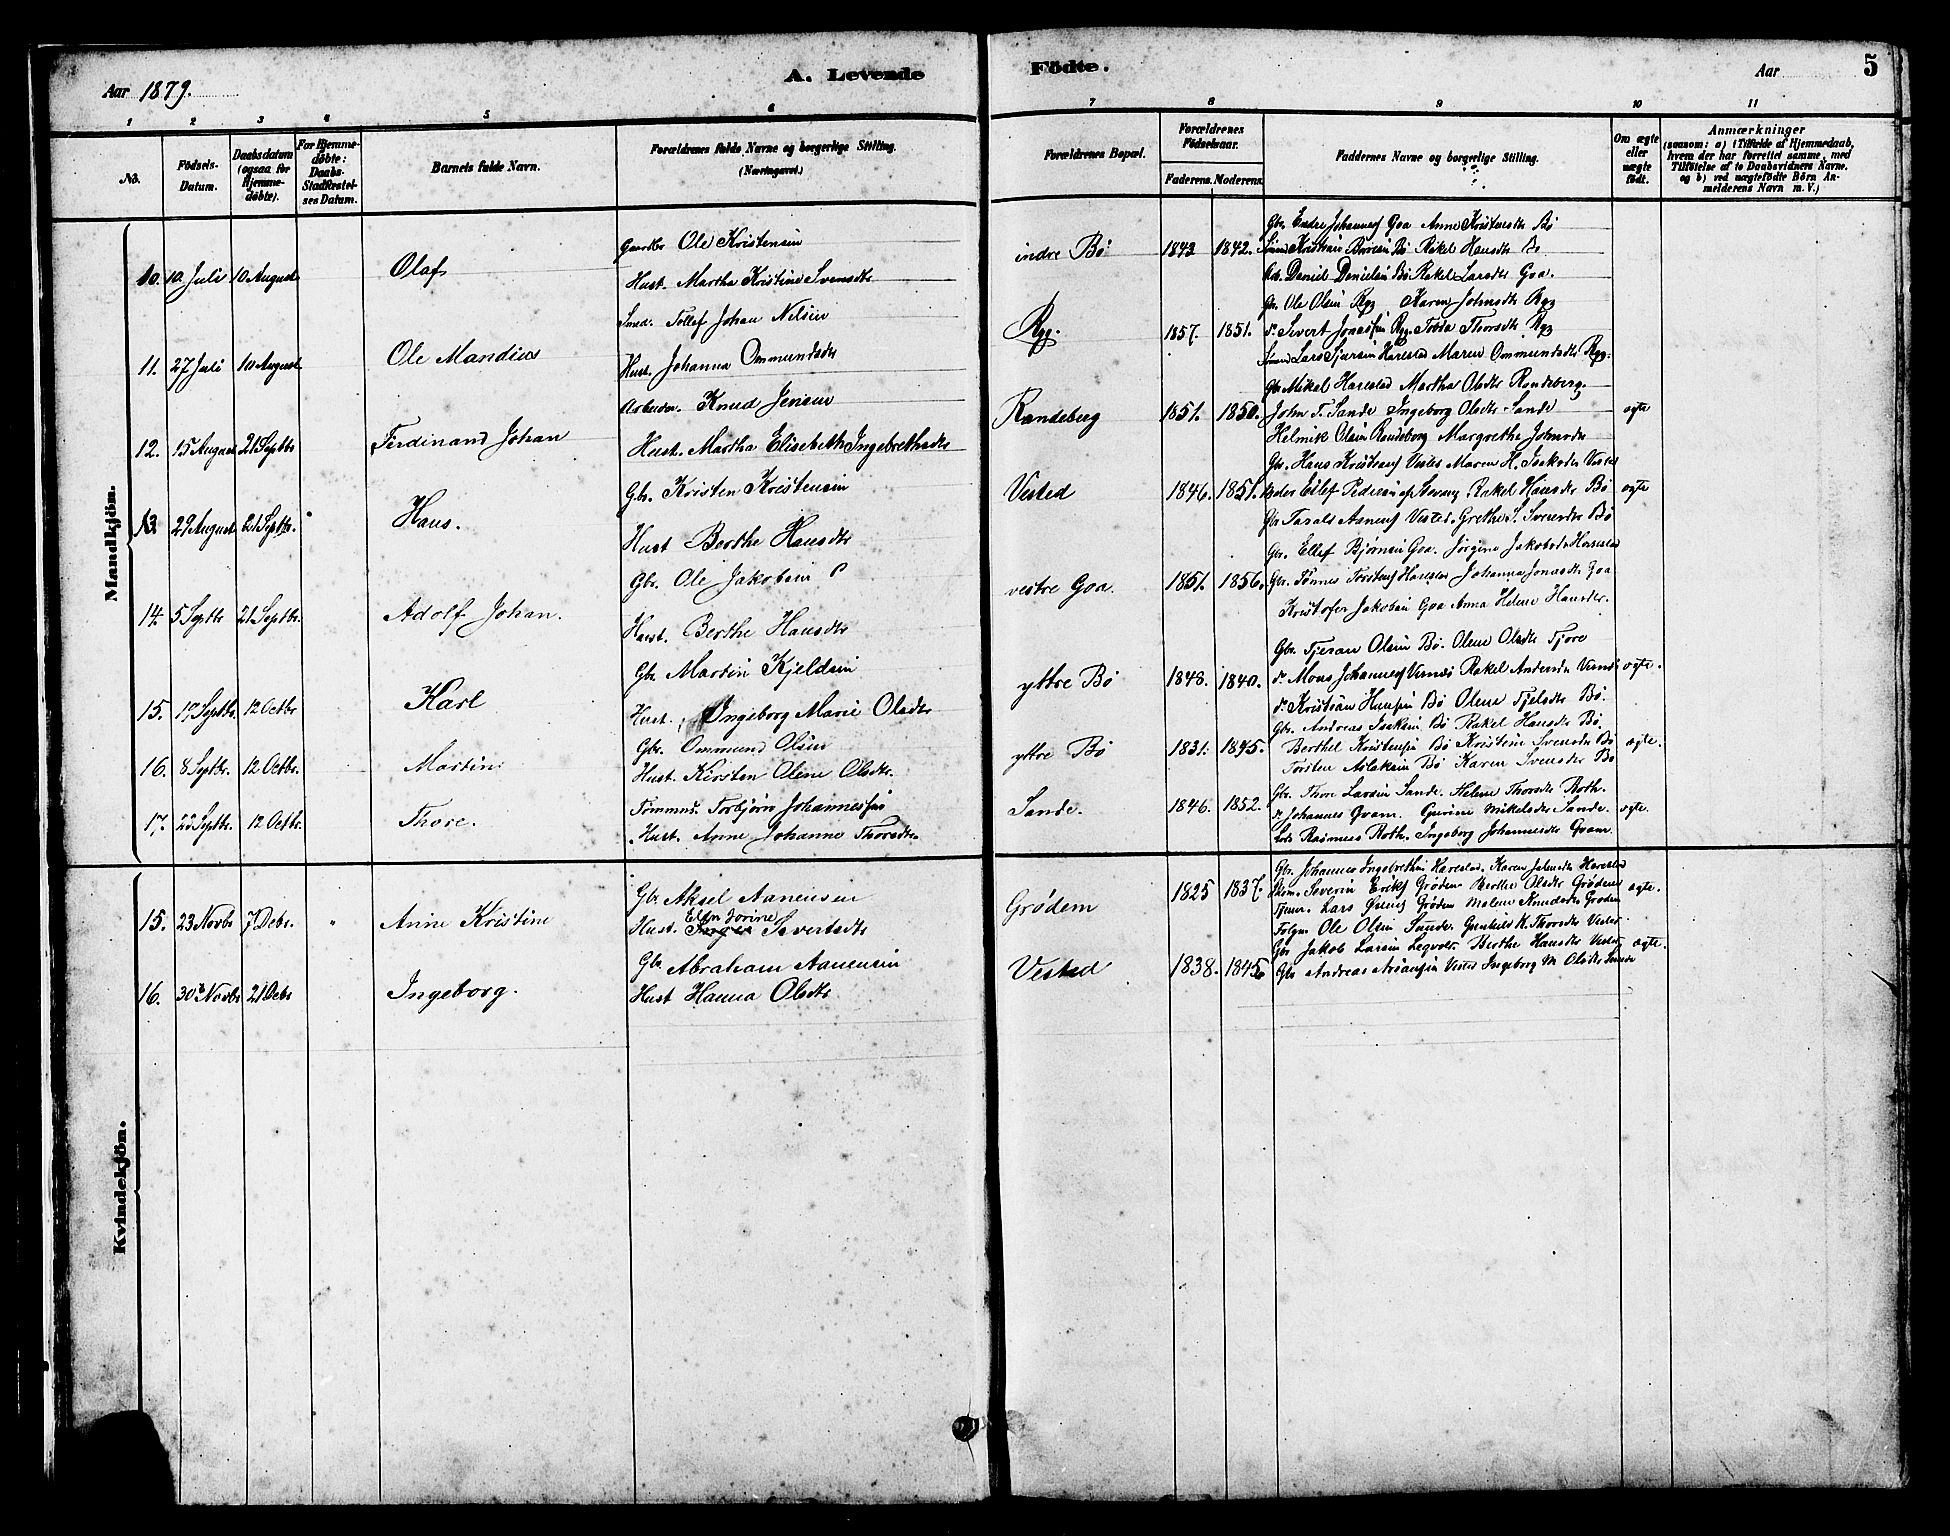 Aar 1879.
A. Levende
Födte.
Aar
5
1
2
3
4
5
6
7
8
9
10
11
No.
Födsels-
Datum.
Daabsdatum
(ogsaa for
Hjemme-
døbte).
For Hjemme-
døbte:
Daabs-
Stadfæstel-
ses Datum.
Barnets fulde Navn.
Forældrenes fulde Navne og borgerlige Stilling.
(Næringsvei.)
Forældrenes Bopæl.
Forældrenes
Födselsaar.
Faderens. Moderens.
Faddernes Navne og borgerlige Stilling.
Om ægte
eller
uægte
født.
Anmærkninger
(saasom: a) i Tilfælde af Hjemmedaab,
hvem der har forrettet samme, med
Tilføielse af to Daabsvidners Navne.
og b) ved uægtefødte Børn An-
melderens Navn m. V.)
Mandkjön.
10. 10 Juli 10 August Olaf
Gaardbr Ole Kristensen
Hust. Martha Kristine Svensdtr
indre Bö 1843 1842.
Gbr. Endre Johannesf Goa Anne Kristensdtr Bö
Kristian Bö Rakel Hansdtr Bö
Daniel Danielsen Bö Rakel Larsdtr Goa.
11. 27 Juli 10 August Ole Mandius
Smed. Tollef Johan Nilsen
Hust. Johanna Ommundsdtr
Ryg. 1857. 1851.
Gbr. Ole Olsen Ryg Karen Johnsdtr Ryg
Sivert Ryg Thorsdtr Ryg
Lars Harestad Maren Ommundsdtr Ryg.
12. 15 August 21 Septbr Ferdinand Johan
Arbeider. Knud Jensen
Hust. Martha Elisebeth Ingebrethsdtr
Randeberg 1851. 1850.
Gbr Mikal Harestad Martha Olsdtr Randeberg.
John T. Sande Ingeborg Olsdtr Sande
Helmik Olsen Randeberg Margrethe Johnsdtr
ægte
13. 29 August 21 Septbr. Hans.
Gbr. Kristen Kristensen
Hust Berthe Hansdtr
Vested 1846. 1851.
Gbr. Hans Kristensf Vested Maren H. Isaksdtr Vested
Eilef Pedersen Rakel Hansdtr Bö
Gbr Tarald Aanensf Vested. Grethe S. Svensdtr Bö
ægte
14. 5 Septbr 21 Septbr. Adolf Johan.
Gbr. Ole Jakobsen
Hust. Berthe Hansdtr
vestre Goa. 1851. 1856.
Gbr. Ellef Björnsen Goa. Jörgine Jakobsdtr Harestad
Gbr. Tönnes Torstensf Harestad Johanna Jonasdtr Goa
Kristofer Jakobsen Goa Anna Helene Hansdtr.
15. 17 Septbr. 12 Octbr Karl
Gbr Martin Kjeldsen
Hust. Ingeborg Marie Olsdtr
yttre Bö 1848. 1840.
Gbr. Tjeran Olsen Bö. Olene Olsdtr Tjore
Mons Johannesf Rakel Andersdtr
Kristian Hansen Bö Olene Tjelsdtr Bö.
ægte.
16. 8 Septbr. 12 Octbr. Martin
Gbr. Ommund Olsen
Hust. Kirsten Olene Olsdtr.
yttre Bö 1831. 1845.
Gbr. Andreas Isaksen Bö Rakel Hansdtr Bö.
Berthel Kristensen Bö Kristine Svensdtr Bö
Torsten Aslaksen Bö Karen Svensdtr Bö
ægte.
17. 22 Septbr. 12 Octbr. Thore.
Tömmerm. Torbjørn Johannessen
Hust. Anne Johanne Thorsdtr
Sande. 1846. 1852.
Gbr. Thore Larsen Sande. Helene Thorsdtr Roth.
Johannes Qvam. Gurine Mikelsdtr Sande.
Rasmus Roth. Ingeborg Johannesdtr Qvam.
ægte.
Kvindekjön.
15. 23 Novbr 7 Decbr. " Anne Kristine
Gbr. Aksel Aanensen
Elen Jorine
Hust. Inger Sivertsdtr
Grödem 1825 1837.
Gbr. Johannes Ingebrethsen Harestad. Karen Johnsdtr Harestad
Severin Eriksf Grödem Berthe Olsdtr Grödem
Lars Grödem Malene Knudsdtr Grödem
ægte.
16. 30te Novbr 21 Decbr " Ingeborg.
Gbr Abraham Aanensen
Hust Hanna Olsdtr
Vested 1838. 1845
Ole Olsen Sande. Gunhild K. Thorsdtr Vested.
Gbr. Jakob Larsen Berthe Hansdtr Vested
Gbr Andreas Vested Ingeborg M Olsdtr Sande
ægte.